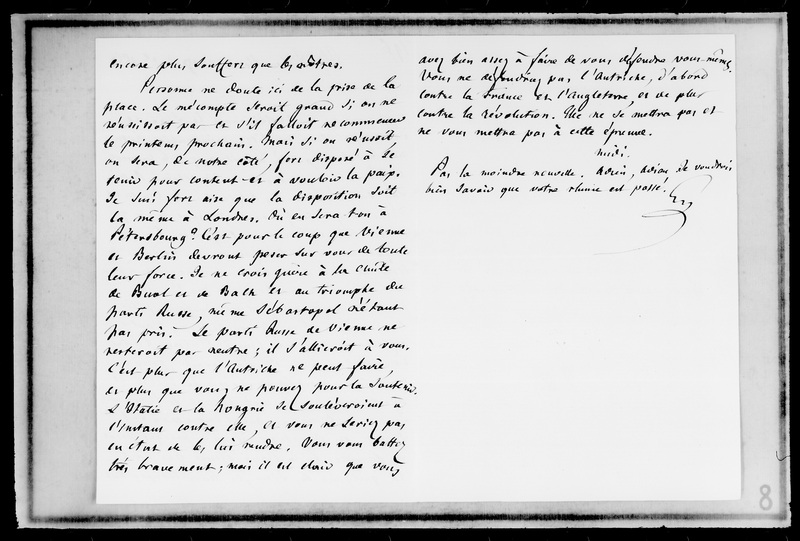 encore plus souffert que les nôtres.
Personne ne doute ici de la prise de la
place. Le mécompte seroit grand si on ne
réussissoit pas et s'il falloit recommencer
le printems prochain. Mais si on réussit,
on sera, de notre côté, fort disposé à se
tenir pour content et à vouloir la paix.
Je suis fort aise que la disposition soit
la même à Londres. Où en sera-t-on à
Pétersbourg ? C'est pour le coup que Vienne
et Berlin devront peser sur vous de toute
leur force. Je ne crois guère à la chute
de Buol et de Bach et au triomphe du
parti Russe, même Sébastopol n'étant
pas pris. Le parti Russe de Vienne ne
resteroit pas neutre ; il s'allieroit à vous.
C'est plus que l'Autriche ne peut faire,
et plus que vous ne pouvez pour la soutenir.
L'Italie et la Hongrie se soulèveroient à
l'instant contre elle, et vous ne seriez pas
en état de les lui rendre. Vous vous battez
très bravement ; mais il est clair que vous
avez bien assez à faire de vous défendre vous-mêmes.
Vous ne défendriez pas l'Autriche, d'abord
contre la France et l'Angleterre, et de plus
contre la révolution. Elle ne se mettra pas et
ne vous mettra pas à cette épreuve.
midi.
Pas la moindre nouvelle. Adieu, adieu. Je voudrois
bien savoir que votre rhume est passé.
8